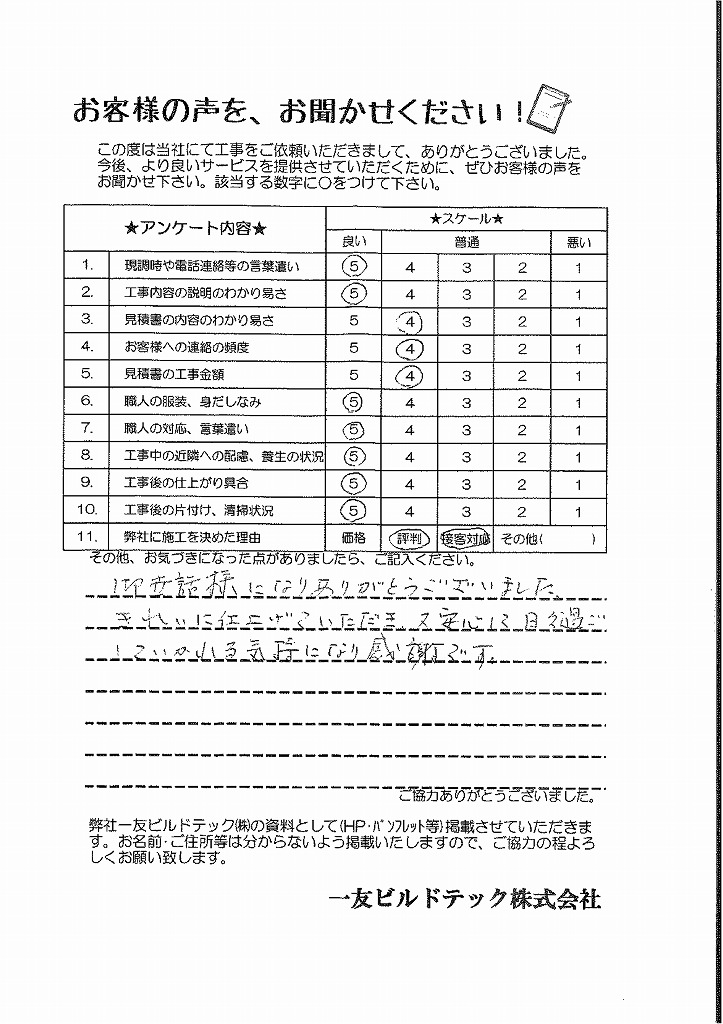 お客様の声を、お聞かせください！
この度は当社にて工事をご依頼いただきまして、ありがとうございました。
今後、より良いサービスを提供させていただくために、ぜひお客様の声を
お聞かせ下さい。該当する数字に○をつけて下さい。
★アンケート内容★ ★スケール★
良い 普通 悪い
1. 現調時や電話連絡等の言葉遣い 5 4 3 2 1
2. 工事内容の説明のわかり易さ 5 4 3 2 1
3. 見積書の内容のわかり易さ 5 4 3 2 1
4. お客様への連絡の頻度 5 4 3 2 1
5. 見積書の工事金額 5 4 3 2 1
6. 職人の服装、身だしなみ 5 4 3 2 1
7. 職人の対応、言葉遣い 5 4 3 2 1
8. 工事中の近隣への配慮、養生の状況 5 4 3 2 1
9. 工事後の仕上がり具合 5 4 3 2 1
10. 工事後の片付け、清掃状況 5 4 3 2 1
11. 弊社に施工を決めた理由 価格 評判 接客対応 その他( )
その他、お気づきになった点がありましたら、ご記入ください。
御世話様になりありがとうございました。
きれいに仕上げていただき、又安心して日々過ご
していかれる気持になり感謝です。
ご協力ありがとうございました。
弊社一友ビルドテック㈱の資料として(HP・ﾊﾟﾝﾌﾚｯﾄ等)掲載させていただきま
す。お名前・ご住所等は分からないよう掲載いたしますので、ご協力の程よろ
しくお願い致します。
一友ビルドテック株式会社